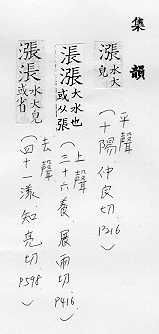 集韻
漲水大皃
(平聲
十陽 仲良切 P216)
漲漲大水也或从張
(上聲
三十六養 展兩切 P416)
漲涱水大皃或省
(去聲
四十一漾 知亮切 P598)